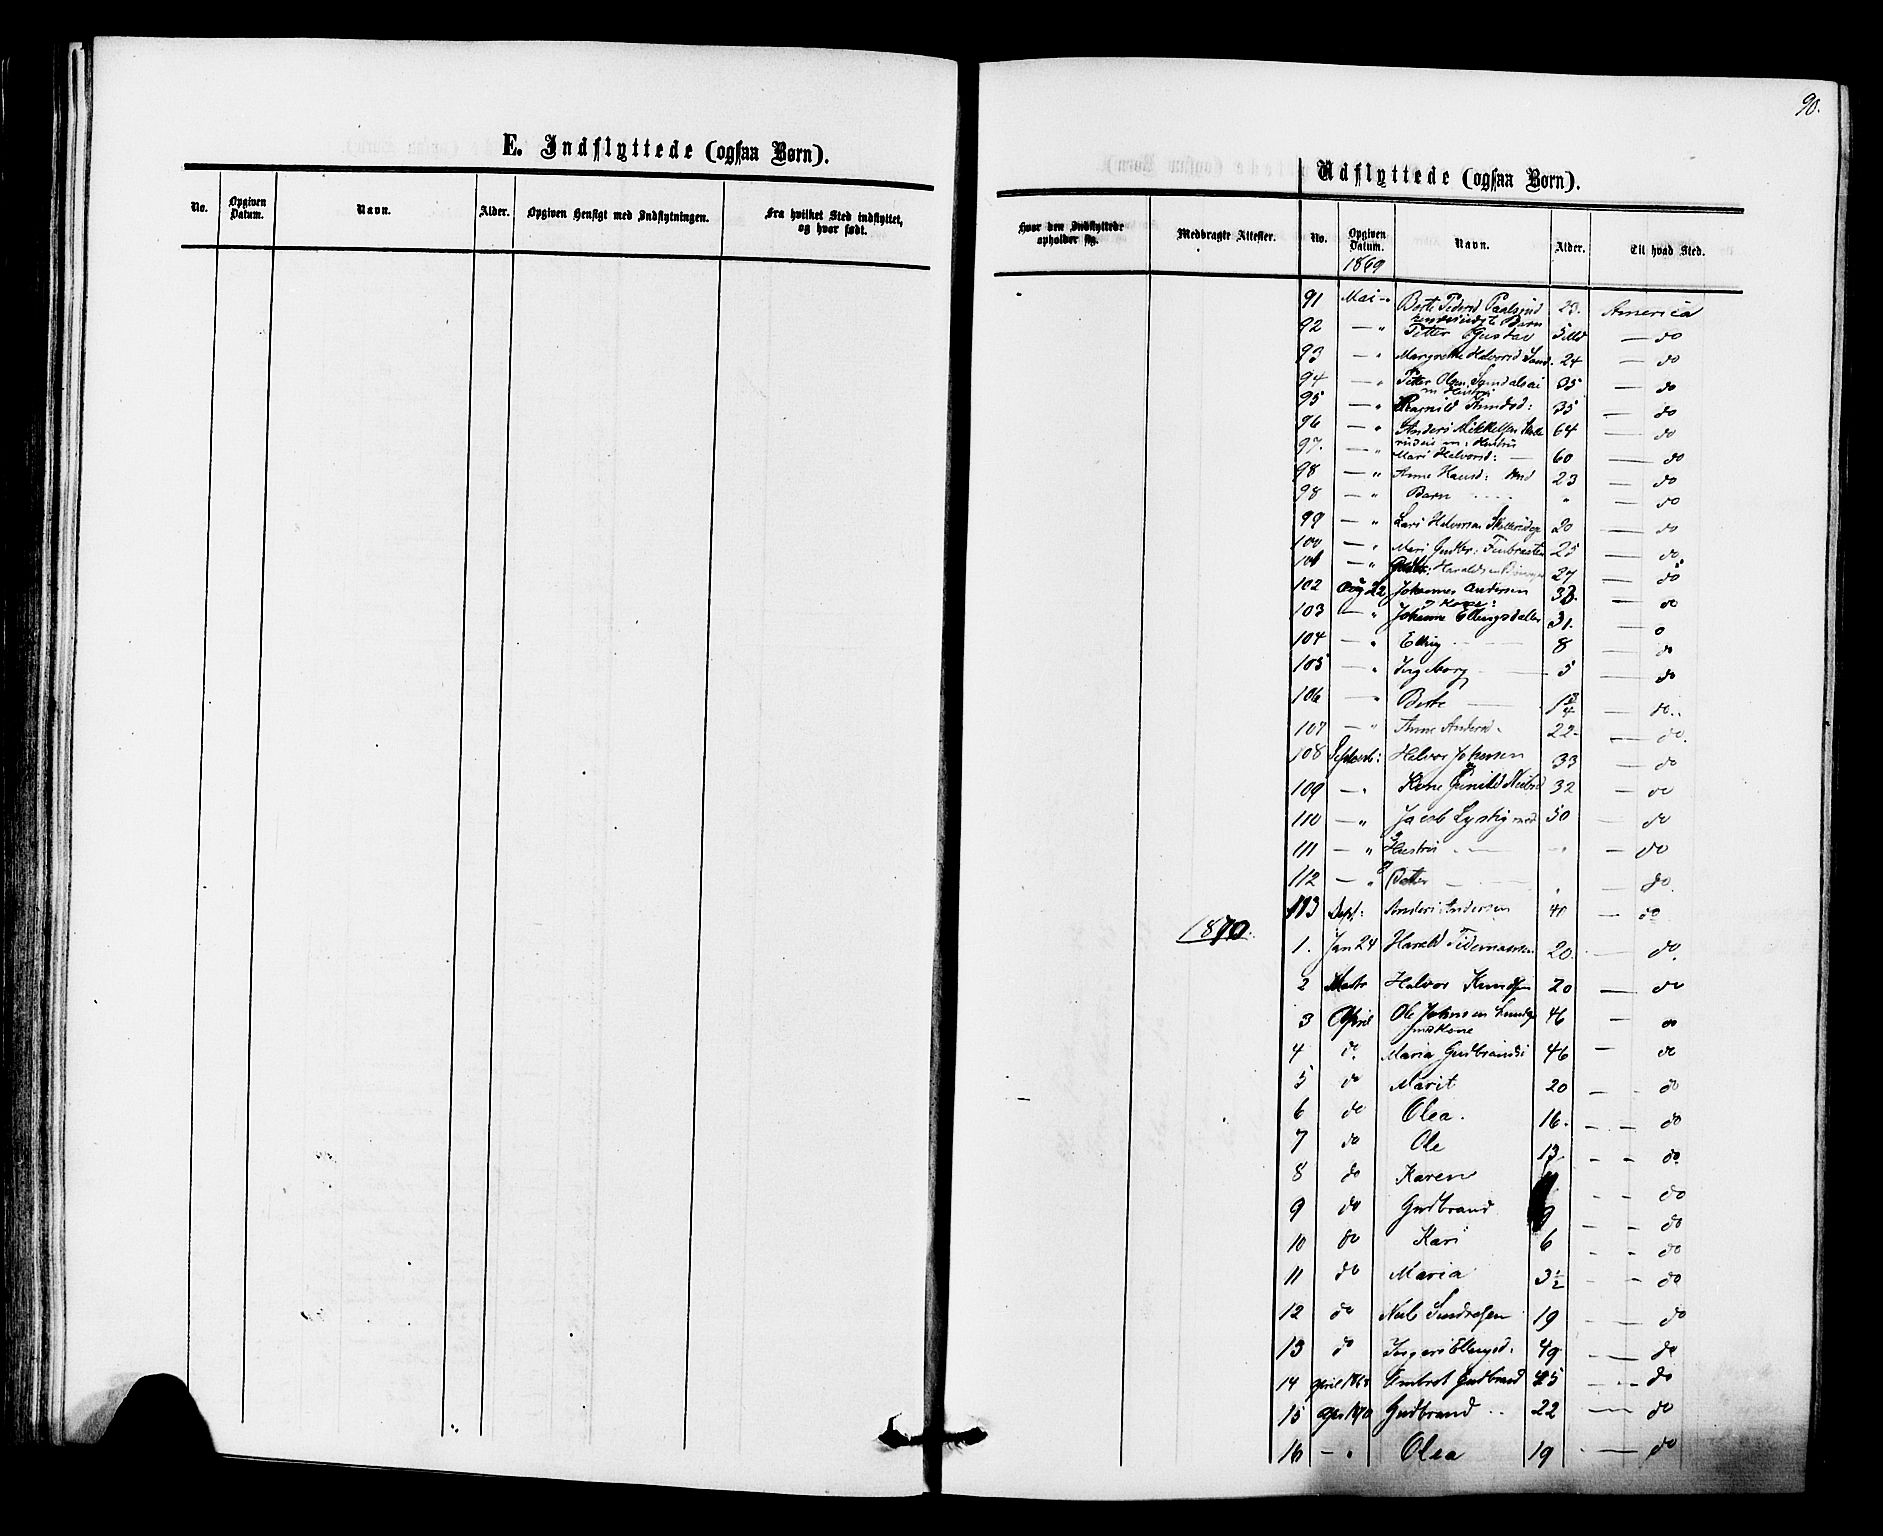 90.
E. Indflyttede (ogsaa Børn).
No. Opgiven Datum. Navn. Alder. Opgiven Hensigt med Indflytningen. Fra hvilket Sted indflyttet, og hvor født.
Udflyttede (ogsaa Børn).
Hvor den Indflyttede opholder sig. Medbragte Attester. No. Opgiven Datum. Navn. Alder. Til hvad Sted.
1869
91 Mai " Berte Pedersd 23. America
Barn
92 — " Petter Gustav 5 Md — do
93 — " Margrethe Halvorsd 24 — do
94 — " Petter Olsen 35 — do
m Hustru
95 — " Ragnild 35 — do
96 — " Anders Mikkelsen 64 — do
m: Hustru
97. — " Mari Halvorsd: — 60 — do
98 — " Anne Hansd: 23 — do
98 — " Barn " — do
99 — " Lars Halvorsen 20 — do
100 — " Mari Gudbr: 25 — do
101 — " Haraldsen 27 — do
102 Aug 22 Johannes Andersen 33. — do
103 — " Johanne Ellingsdatter 31. — o
104 — " Elling 8 — do
105 — " Ingeborg — 5 — do
106 — " Berte — 1 3/4 — do
107 — " Anne Andersd 22 — do.
108 Septemb: Halvor Johansen 33 — do
109 — " Kone Gunild 32 — do
110 — " Jacob Lystig med 50 — do
111 — " Hustru — do
112 — " Datter — " — do.
113 Sept: Anders Andersen 40 — do
1870.
1. Jan 24 Harald 20. — do.
2 Marts Halvor Knudsen 20 — do
3 April Ole Johnsen 46 — do
Kone
4 do Maria Gudbrandsd 46 — do
5 do Marit 20 — do
6 do Olea. 16. — do
7 do Ole 13. — do.
8 do Karen — do
9 do Gudbrand 9 — do
10 do Kari 6 — do
11 do Maria 3 1/2 — do
12 do Niels 19 — do
13 do Ingeri Ellingsd: 49 — do
14 April Embret Gudbrand — do
15 Apr 1870 Gudbrand 22 — do
16 — " Olea 19 — do